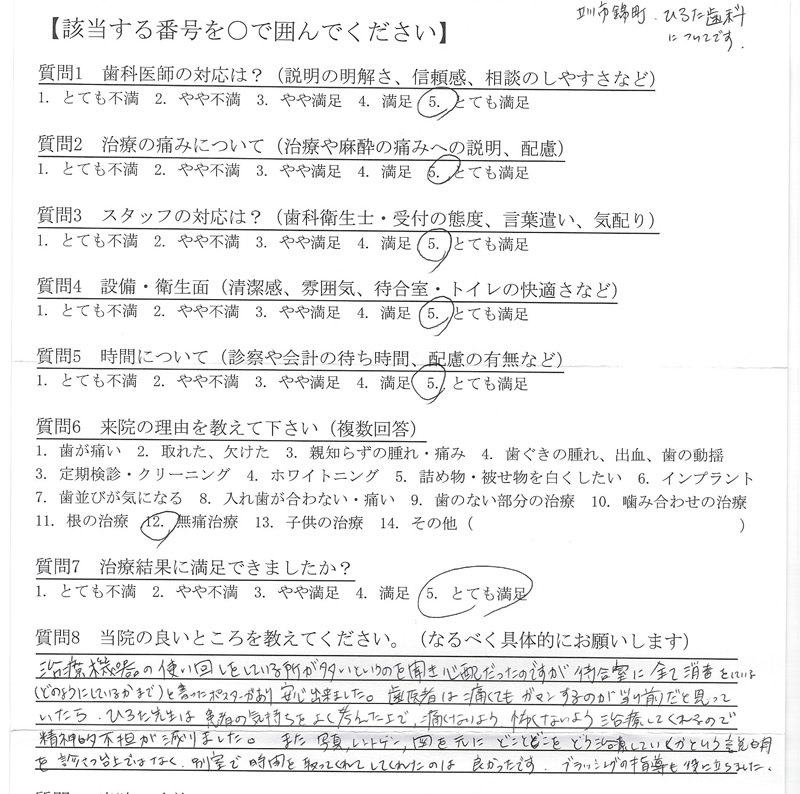 立川市錦町.ひろた歯科
についてです.
【該当する番号を○で囲んでください】
質問1 歯科医師の対応は？（説明の明解さ、信頼感、相談のしやすさなど）
1. とても不満 2. やや不満 3. やや満足 4. 満足 5. とても満足
質問2 治療の痛みについて（治療や麻酔の痛みへの説明、配慮）
1. とても不満 2. やや不満 3. やや満足 4. 満足 5. とても満足
質問3 スタッフの対応は？（歯科衛生士・受付の態度、言葉遣い、気配り）
1. とても不満 2. やや不満 3. やや満足 4. 満足 5. とても満足
質問4 設備・衛生面（清潔感、雰囲気、待合室・トイレの快適さなど）
1. とても不満 2. やや不満 3. やや満足 4. 満足 5. とても満足
質問5 時間について（診察や会計の待ち時間、配慮の有無など）
1. とても不満 2. やや不満 3. やや満足 4. 満足 5. とても満足
質問6 来院の理由を教えて下さい（複数回答）
1. 歯が痛い 2. 取れた、欠けた 3. 親知らずの腫れ・痛み 4. 歯ぐきの腫れ、出血、歯の動揺
3. 定期検診・クリーニング 4. ホワイトニング 5. 詰め物・被せ物を白くしたい 6. インプラント
7. 歯並びが気になる 8. 入れ歯が合わない・痛い 9. 歯のない部分の治療 10. 噛み合わせの治療
11. 根の治療 12. 無痛治療 13. 子供の治療 14. その他（ ）
質問7 治療結果に満足できましたか？
1. とても不満 2. やや不満 3. やや満足 4. 満足 5. とても満足
質問8 当院の良いところを教えてください。（なるべく具体的にお願いします）
治療機器の使い回しをしている所が多いというのを聞き心配だったのですが待合室に全て消毒をしている
(どのようにしているかまで)と言ったポスターがあり安心出来ました。歯医者は痛くてもガマンするのが当り前だと思って
いたら.ひろた先生は患者の気持ちをよく考えた上で,痛くないよう怖くないよう治療してくれるので
精神的不担が減りました。また写真,レントゲン,図を元にどことどこをどう治療していくかという説明
を診てる台上ではなく.別室で時間を取ってくれてしてくれたのは良かったです.ブラッシングの指導も役に立ちました.